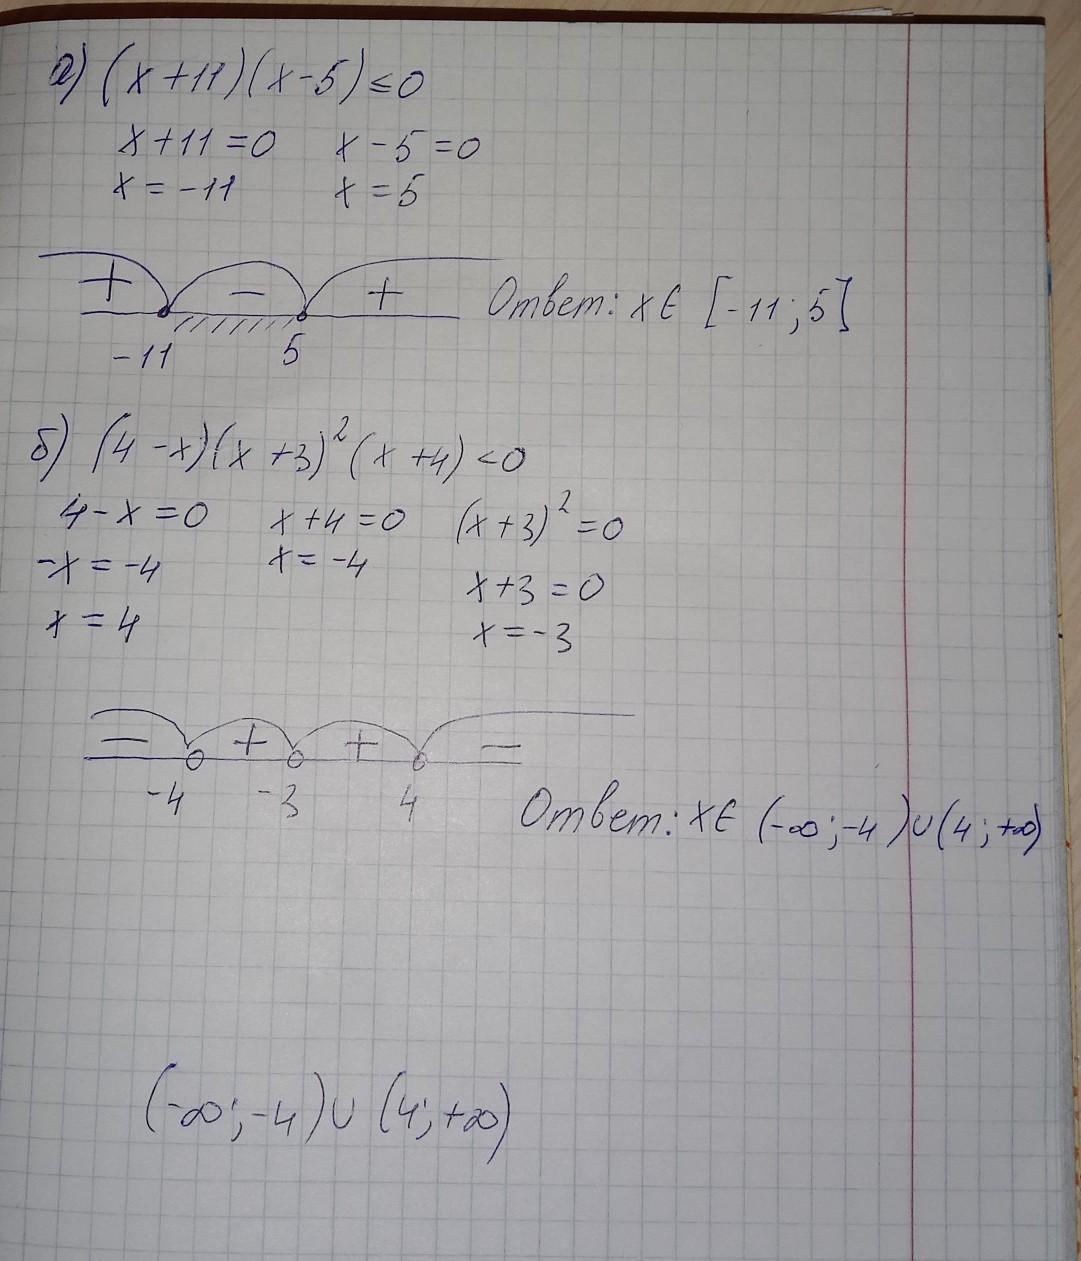 а) (x+11)(x-5)≤0
x+11=0 x-5=0
x=-11 x=5
+ - + Ответ: x∈ [-11;5]
-11 5
б) (4-x)(x+3)²(x+4)<0
4-x=0 x+4=0 (x+3)²=0
-x=-4 x=-4 x+3=0
x=4 x=-3
- + + -
-4 -3 4 Ответ: x∈ (-∞;-4)∪(4;+∞)
(-∞;-4)∪(4;+∞)